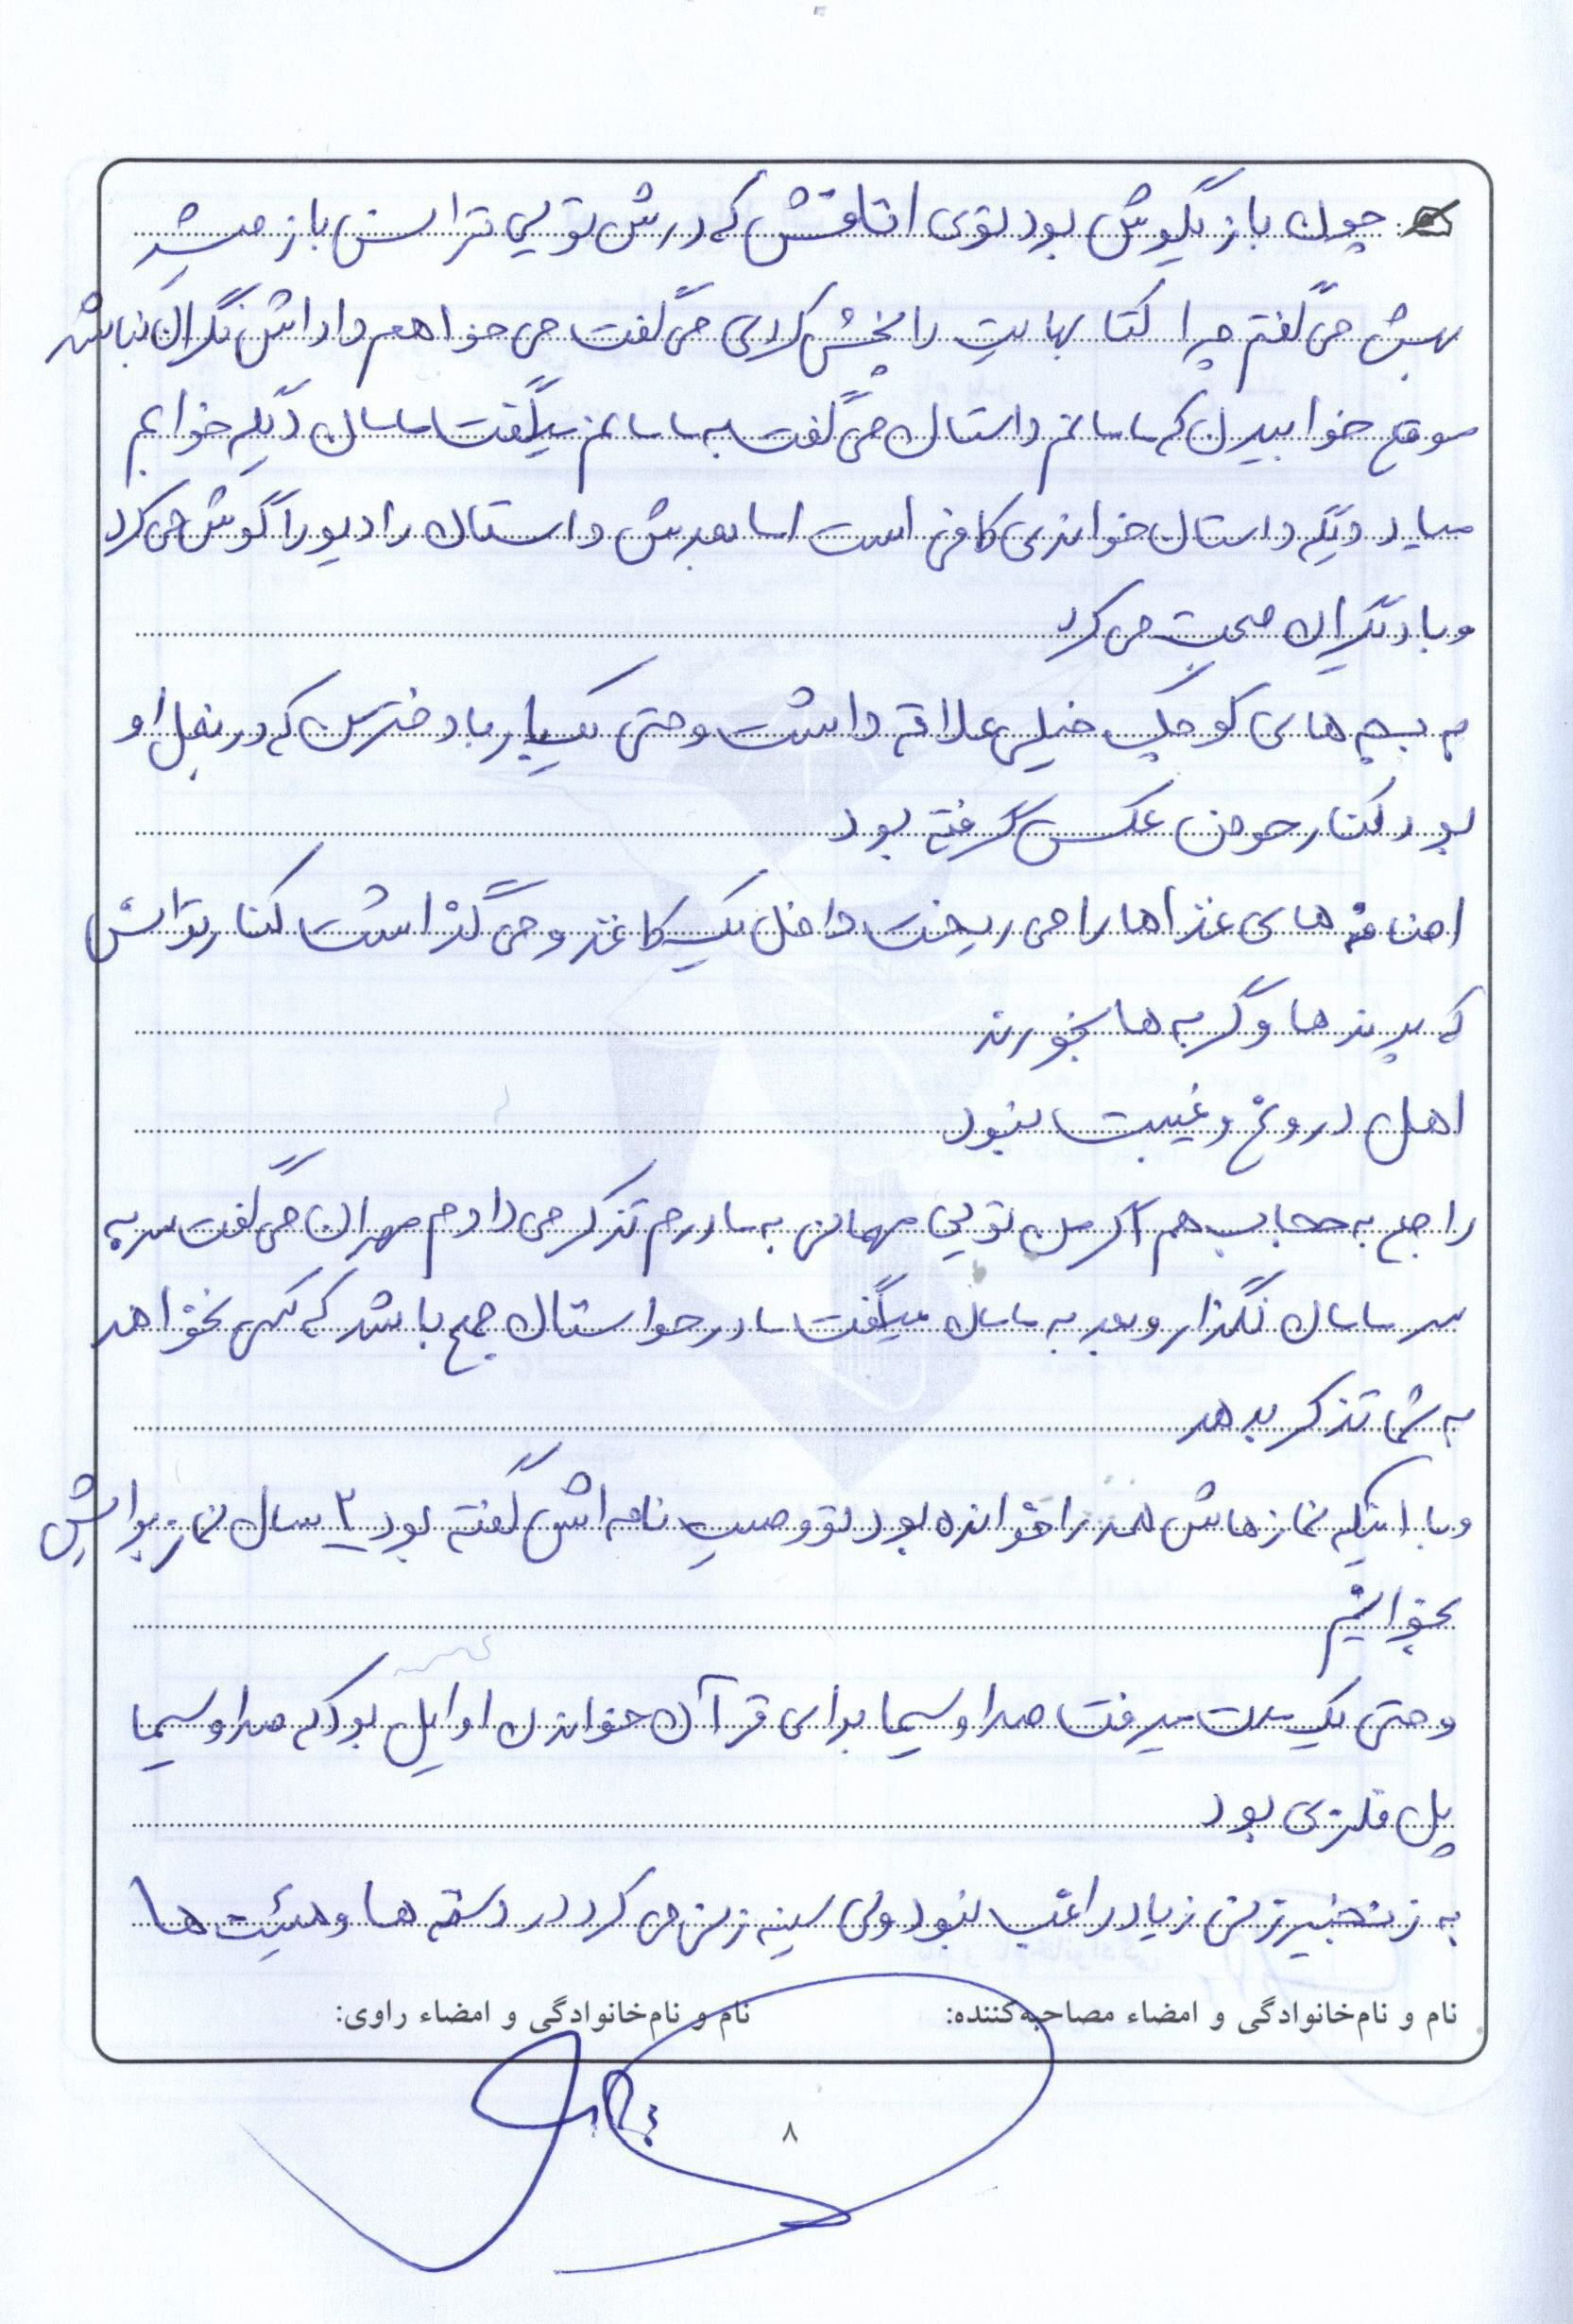 چون بازیگوش بود توی اتاقش که درش تویی تراسش باز میشد
بهش می‌گفتم چرا کتابهایت را پخش کردی می‌گفت می‌خواهم داداش نگران نباشد
موقع خوابیدن که مامانم داستان می‌گفت به مامانم میگفت مامان دیگه خوابم
میاد دیگه داستان خواندی کافی است اما بعدش داستان رادیو را گوش می‌کرد
و با دیگران صحبت می‌کرد
به بچه‌های کوچک خیلی علاقه داشت و حتی یکبار با دخترش که در بغل او
بود کنار حوض عکس گرفته بود
اضافه‌های غذاها را می‌ریخت داخل یک کاغذ و می‌گذاشت کنار تراس
که پرندها و گربه‌ها بخورند
اهل دروغ و غیبت نبود
راجع به حجاب هم اگر من تویی مهمانی به مادرم تذکر می‌دادم مهران می‌گفت سربه
سر مامان نگذار و بعد به مامان میگفت مادر حواستان جمع باشد که کسی نخواهد
به شما تذکر بدهد
و با اینکه نمازهاش را خوانده بود تو وصیت نامه‌اش گفته بود ۲ سال نماز برایش
بخوانیم
و حتی یک مدت میرفت صدا و سیما برای قرآن خواندن اوایل بود که صدا و سیما
پل فلزی بود
به زنجیرزنی زیاد راغب نبود ولی سینه زنی می‌کرد در دسته‌ها و هیئت‌ها
نام و نام‌خانوادگی و امضاء مصاحبه‌کننده: نام و نام‌خانوادگی و امضاء راوی:
۸